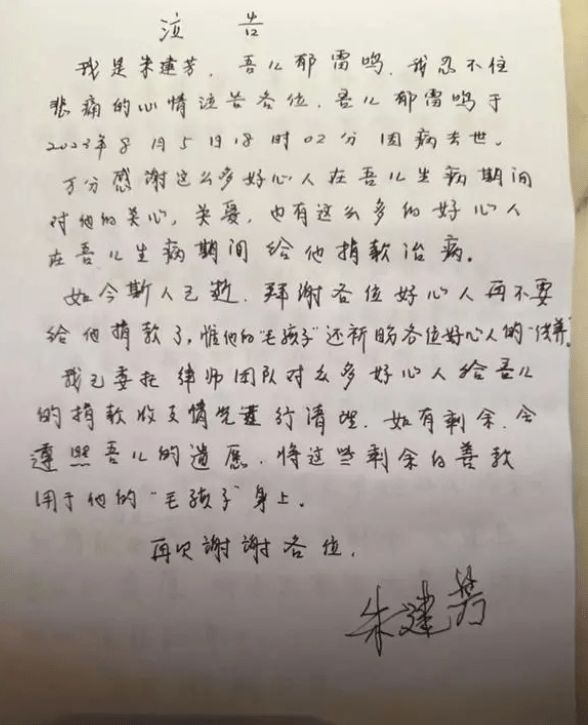 泣告
我是朱建芳，吾儿郁雷鸣，我忍不住
悲痛的心情泣告各位，吾儿郁雷鸣于
2023年8月5日18时02分因病去世。
万分感谢这么多好心人在吾儿生病期间
对他的关心，关爱，也有这么多的好心人
在吾儿生病期间给他捐款治病。
如今斯人已逝，拜谢各位好心人再不要
给他捐款了，惟他的“毛孩子”还祈盼各位好心人的“领养”。
我已委托律师团队对么多好心人给吾儿
的捐款收支情况进行清理，如有剩余，会
遵照吾儿的遗愿，将这些剩余的善款
用于他的“毛孩子”身上。
再次謝謝各位，
朱建芳